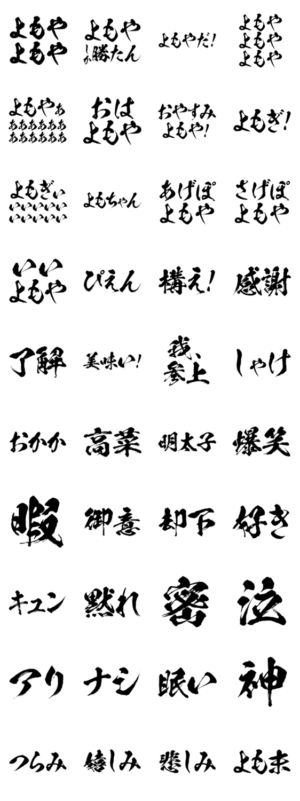 よもや
よもや
よもや
しか勝たん
よもやだ!
よもや
よもや
よもや
よもやぁ
ぁぁぁぁぁぁ
ぁぁぁぁぁぁ
おは
よもや
おやすみ
よもや!
よもぎ!
よもぎぃ
ぃぃぃぃぃ
ぃぃぃぃぃ
よもちゃん
あげぽ
よもや
さげぽ
よもや
いい
よもや
ぴえん
構え!
感謝
了解
美味い!
我、
参上
しゃけ
おかか
高菜
明太子
爆笑
暇
御意
却下
好き
キュン
黙れ
密
泣
アリ
ナシ
眠い
神
つらみ
嬉しみ
悲しみ
よも末